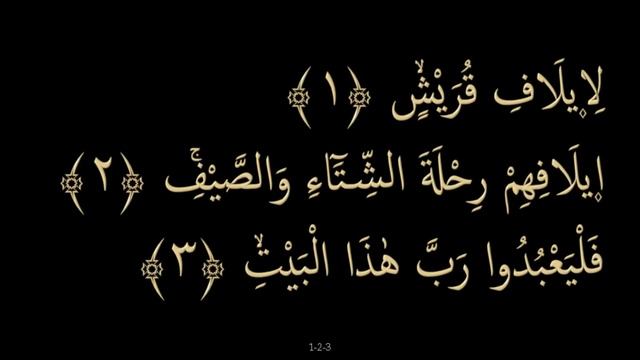 لِا۪يلَافِ قُرَيْشٍۙ ﴿١﴾
ا۪يلَافِهِمْ رِحْلَةَ الشِّتَٓاءِ وَالصَّيْفِۚ ﴿٢﴾
فَلْيَعْبُدُوا رَبَّ هٰذَا الْبَيْتِۙ ﴿٣﴾
1-2-3